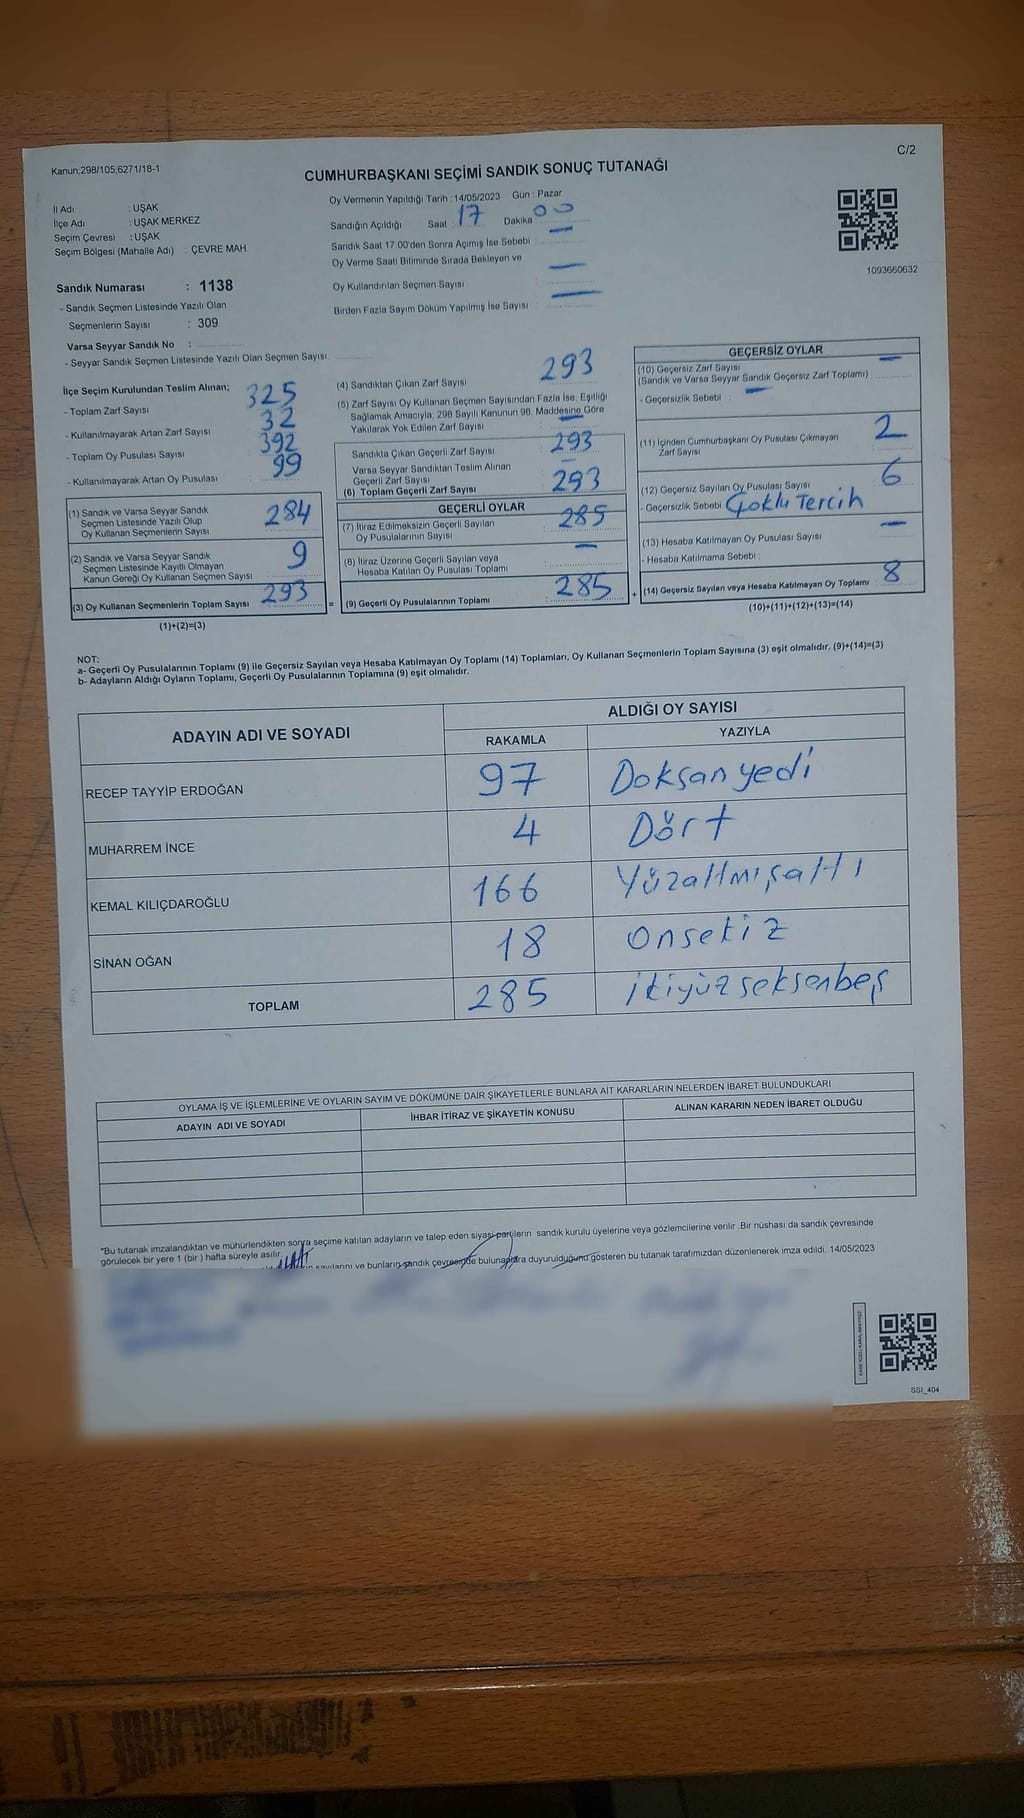 Kanun;298/105;6271/18-1
C/2
CUMHURBAŞKANI SEÇİMİ SANDIK SONUÇ TUTANAĞI
İl Adı : UŞAK
İlçe Adı : UŞAK MERKEZ
Seçim Çevresi : UŞAK
Seçim Bölgesi (Mahalle Adı) : ÇEVRE MAH.
Sandık Numarası : 1138
- Sandık Seçmen Listesinde Yazılı Olan
Seçmenlerin Sayısı : 309
Varsa Seyyar Sandık No :
- Seyyar Sandık Seçmen Listesinde Yazılı Olan Seçmen Sayısı
Oy Vermenin Yapıldığı Tarih : 14/05/2023 Gün : Pazar
Sandığın Açıldığı Saat : 17 Dakika 00
Sandık Saat 17:00'den Sonra Açımış İse Sebebi : —
Oy Verme Saati Bitiminde Sırada Bekleyen ve
Oy Kullandırılan Seçmen Sayısı —
Birden Fazla Sayım Döküm Yapılmış İse Sayısı : —
1093660632
İlçe Seçim Kurulundan Teslim Alınan;
- Toplam Zarf Sayısı 325
- Kullanılmayarak Artan Zarf Sayısı 32
- Toplam Oy Pusulası Sayısı 392
- Kullanılmayarak Artan Oy Pusulası 99
(1) Sandık ve Varsa Seyyar Sandık
Seçmen Listesinde Yazılı Olup
Oy Kullanan Seçmenlerin Sayısı 284
(2) Sandık ve Varsa Seyyar Sandık
Seçmen Listesinde Kayıtlı Olmayan
Kanun Gereği Oy Kullanan Seçmen Sayısı 9
(3) Oy Kullanan Seçmenlerin Toplam Sayısı 293
(1)+(2)=(3)
=
(4) Sandıktan Çıkan Zarf Sayısı 293
(5) Zarf Sayısı Oy Kullanan Seçmen Sayısından Fazla İse, Eşitliği
Sağlamak Amacıyla, 298 Sayılı Kanunun 98. Maddesine Göre
Yakılarak Yok Edilen Zarf Sayısı —
Sandıkta Çıkan Geçerli Zarf Sayısı 293
Varsa Seyyar Sandıktan Teslim Alınan
Geçerli Zarf Sayısı —
(6) Toplam Geçerli Zarf Sayısı 293
GEÇERLİ OYLAR
(7) İtiraz Edilmeksizin Geçerli Sayılan
Oy Pusulalarının Sayısı 285
(8) İtiraz Üzerine Geçerli Sayılan veya
Hesaba Katılan Oy Pusulası Toplamı —
(9) Geçerli Oy Pusulalarının Toplamı 285
+
GEÇERSİZ OYLAR
(10) Geçersiz Zarf Sayısı —
(Sandık ve Varsa Seyyar Sandık Geçersiz Zarf Toplamı)
- Geçersizlik Sebebi : —
(11) İçinden Cumhurbaşkanı Oy Pusulası Çıkmayan
Zarf Sayısı 2
(12) Geçersiz Sayılan Oy Pusulası Sayısı 6
- Geçersizlik Sebebi Çoklu Tercih
(13) Hesaba Katılmayan Oy Pusulası Sayısı —
- Hesaba Katılmama Sebebi :
(14) Geçersiz Sayılan veya Hesaba Katılmayan Oy Toplamı 8
(10)+(11)+(12)+(13)=(14)
NOT:
a- Geçerli Oy Pusulalarının Toplamı (9) ile Geçersiz Sayılan veya Hesaba Katılmayan Oy Toplamı (14) Toplamları, Oy Kullanan Seçmenlerin Toplam Sayısına (3) eşit olmalıdır. (9)+(14)=(3)
b- Adayların Aldığı Oyların Toplamı, Geçerli Oy Pusulalarının Toplamına (9) eşit olmalıdır.
ADAYIN ADI VE SOYADI
ALDIĞI OY SAYISI
RAKAMLA YAZIYLA
RECEP TAYYİP ERDOĞAN 97 Doksanyedi
MUHARREM İNCE 4 Dört
KEMAL KILIÇDAROĞLU 166 Yüzaltmışaltı
SİNAN OĞAN 18 Onsekiz
TOPLAM 285 ikiyüzseksenbeş
OYLAMA İŞ VE İŞLEMLERİNE VE OYLARIN SAYIM VE DÖKÜMÜNE DAİR ŞİKAYETLERLE BUNLARA AİT KARARLARIN NELERDEN İBARET BULUNDUKLARI
ADAYIN ADI VE SOYADI İHBAR İTİRAZ VE ŞİKAYETİN KONUSU ALINAN KARARIN NEDEN İBARET OLDUĞU
*Bu tutanak imzalandıktan ve mühürlendikten sonra seçime katılan adayların ve talep eden siyasi partilerin sandık kurulu üyelerine veya gözlemcilerine verilir .Bir nüshası da sandık çevresinde
görülecek bir yere 1 (bir ) hafta süreyle asılır.
sayılarını ve bunların sandık çevresinde bulunanlara duyurulduğunu gösteren bu tutanak tarafımızdan düzenlenerek imza edildi. 14/05/2023
SSI_404